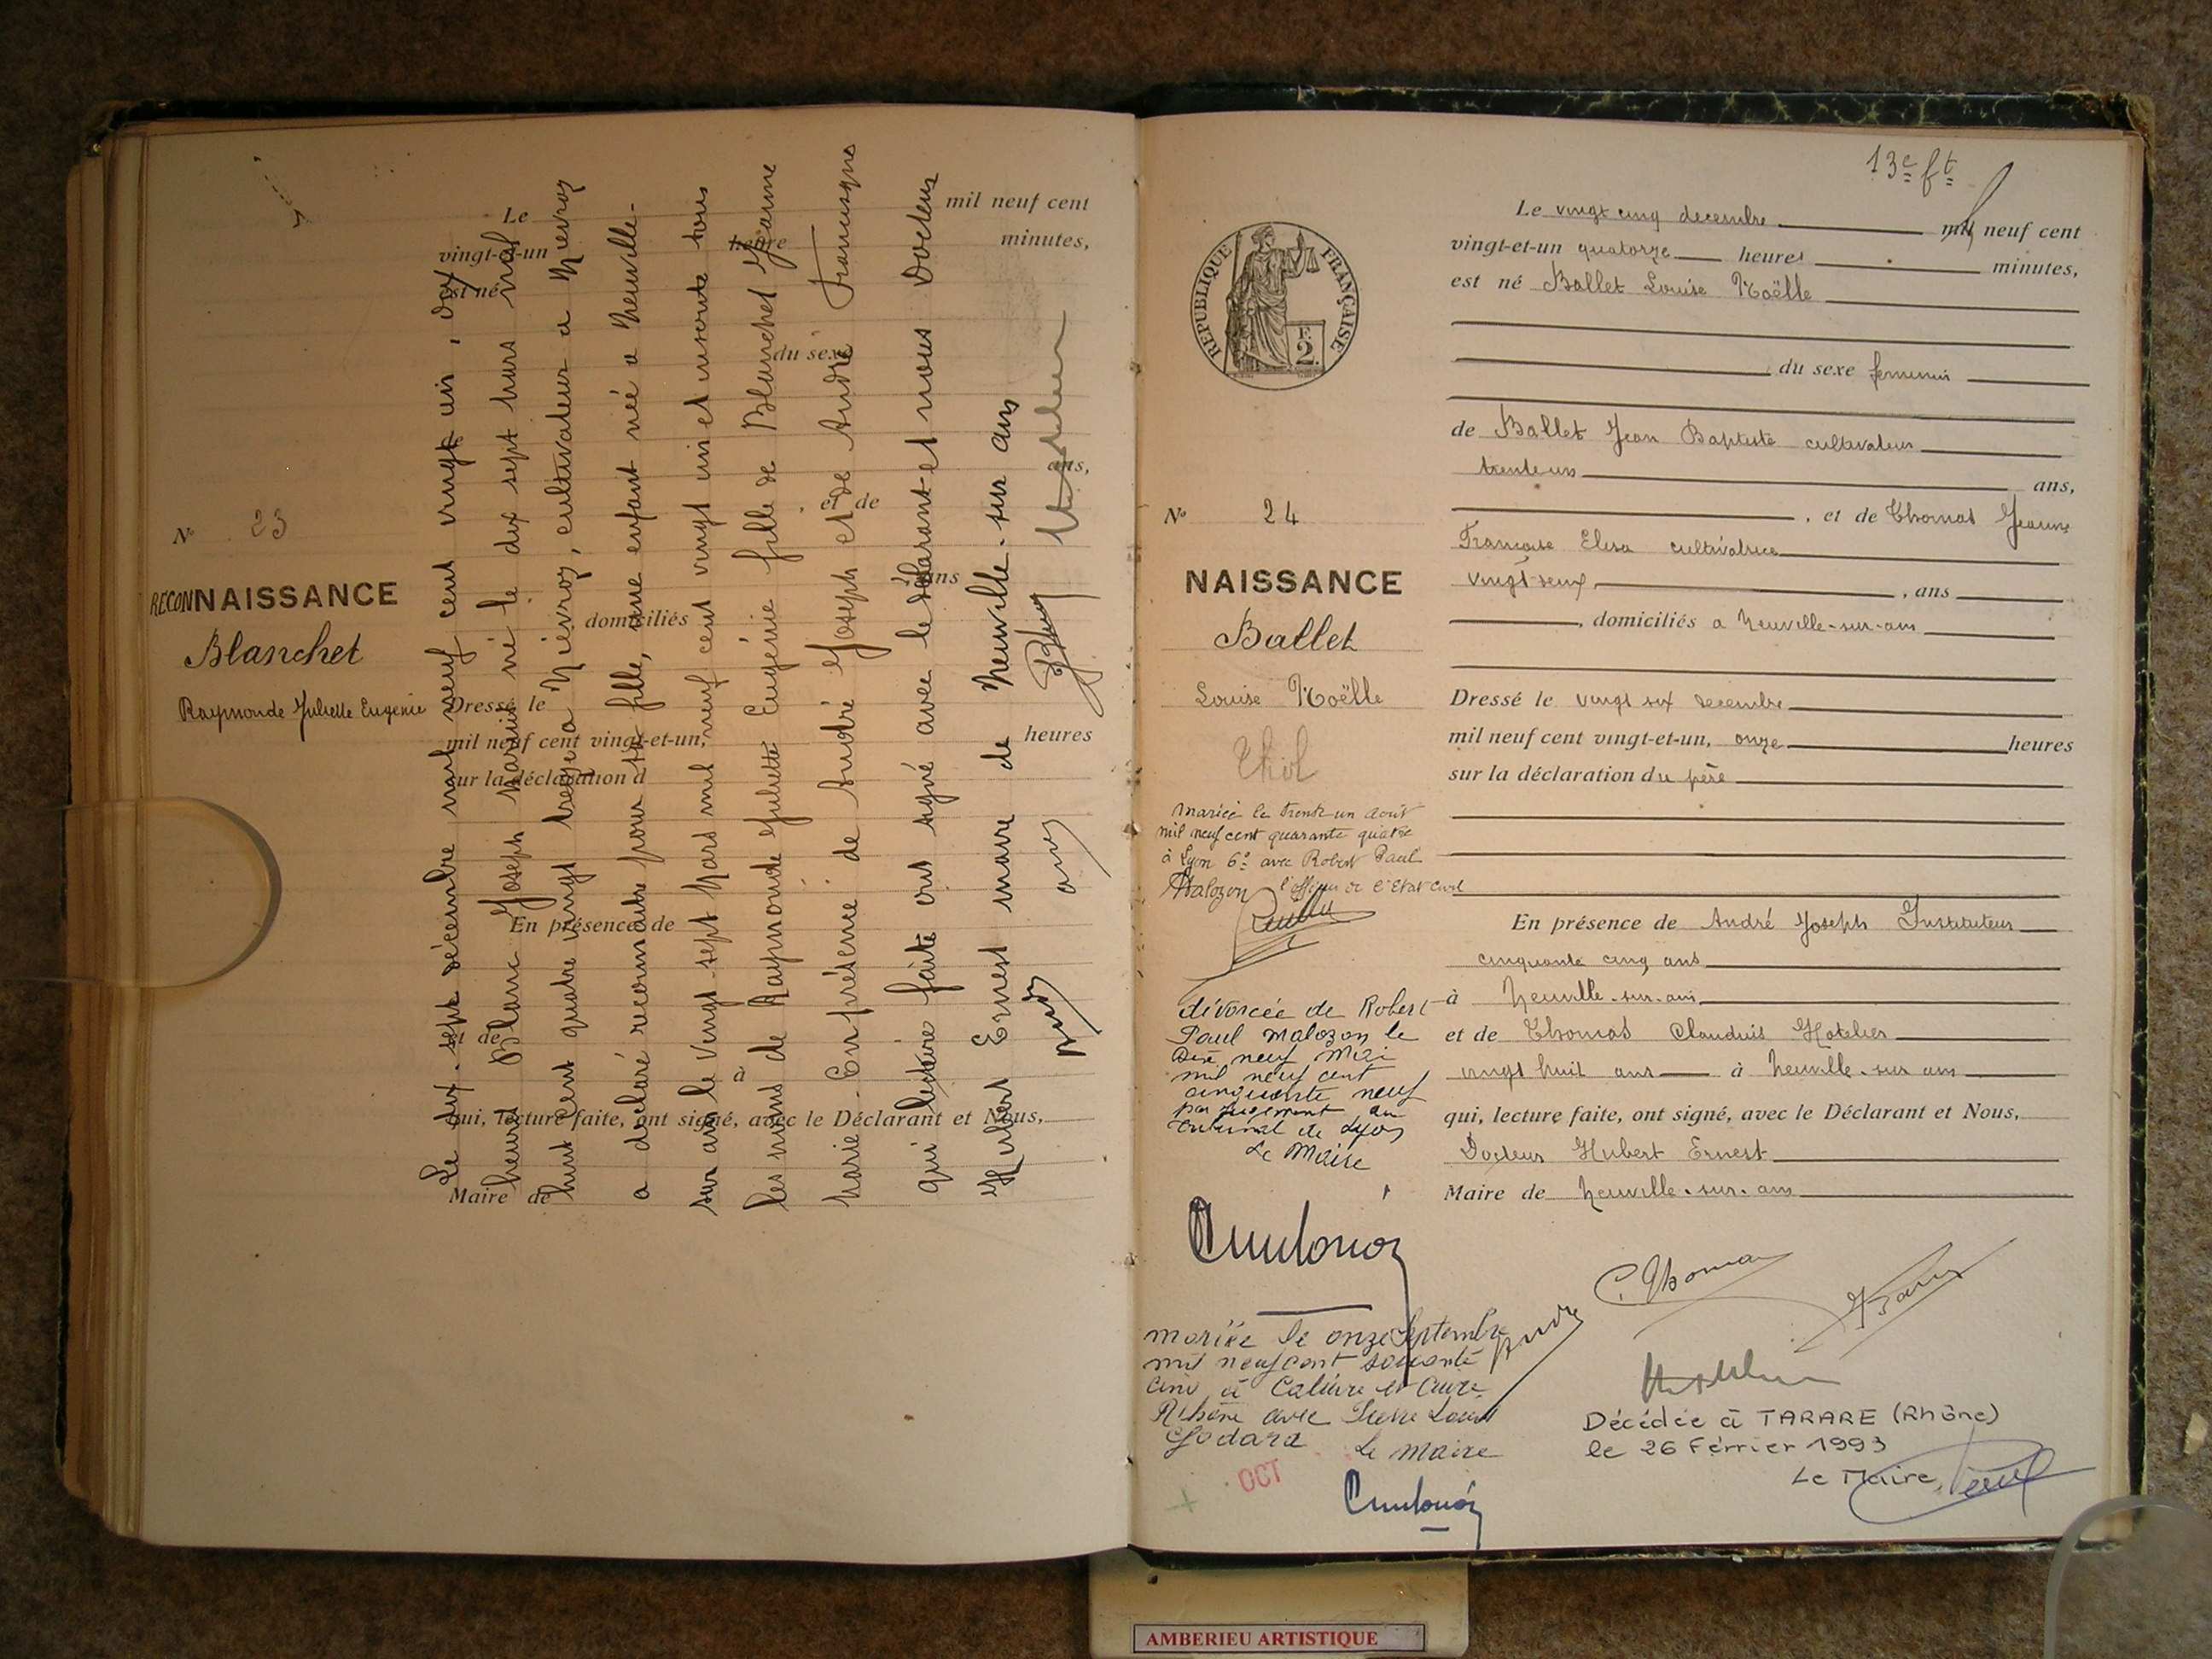 N° 23
RECONNAISSANCE
Blanchet
Raymonde Juliette Eugénie
Le mil neuf cent
vingt-et-un heure minutes,
est né
du sexe
ans,
, et de
ans
domiciliés
Dressé le
mil neuf cent vingt-et-un, heures
sur la déclaration d
En présence de
et de
à
qui, lecture faite, ont signé, avec le Déclarant et Nous,
Maire de
Le dix-sept décembre mil neuf cent vingt un, dix
heures Blanc Joseph Marius né le dix sept mars mil
huit cent quatre vingt treize a Niévroz, cultivateur a Niévroz
a déclaré reconnaitre pour sa fille, une enfant née a Neuville-
sur ain le vingt-sept Mars mil neuf cent vingt un et inscrite sous
les noms de Raymonde Juliette Eugénie fille de Blanchet Jeanne
Marie. En présence de André Joseph et de André Francisque
qui lecture faite ont signé avec le déclarant et nous Docteur
Hubert Ernest maire de Neuville-sur ain
13e ft
REPUBLIQUE FRANÇAISE
F.
2.
N° 24
NAISSANCE
Ballet
Louise Noëlle
Le vingt cinq decembre mil neuf cent
vingt-et-un quatorze heures minutes,
est né Ballet Louise Noëlle
du sexe feminin
de Ballet Jean Baptiste cultivateur
trente un ans,
, et de Thomas Jeanne
Françoise Elisa cultivatrice
, ans
, domiciliés a Neuville-sur-ain
Dressé le vingt six decembre
mil neuf cent vingt-et-un, onze heures
sur la déclaration du père
En présence de André Joseph Instituteur
cinquante cinq ans
à Neuville-sur-ain
et de Thomas Claudius Hotelier
vingt huit ans à Neuville-sur ain
qui, lecture faite, ont signé, avec le Déclarant et Nous,
Docteur Hubert Ernest
Maire de Neuville-sur-ain
mariée le trente un août
mil neuf cent quarante quatre
à Lyon 6e avec Robert Paul
Malozon l'officier de l'Etat Civil
divorcée de Robert
Paul Malozon le
dix neuf Mai
mil neuf cent
cinquante neuf
par jugement du
tribunal de Lyon
Le Maire
mariée le onze Septembre
mil neuf cent soixante
cinq à Caluire et Cuire
Rhône avec Pierre Louis
Godard Le Maire
OCT
C. Thomas
André
Décédée à TARARE (Rhône)
le 26 Février 1993
Le Maire,
AMBERIEU ARTISTIQUE